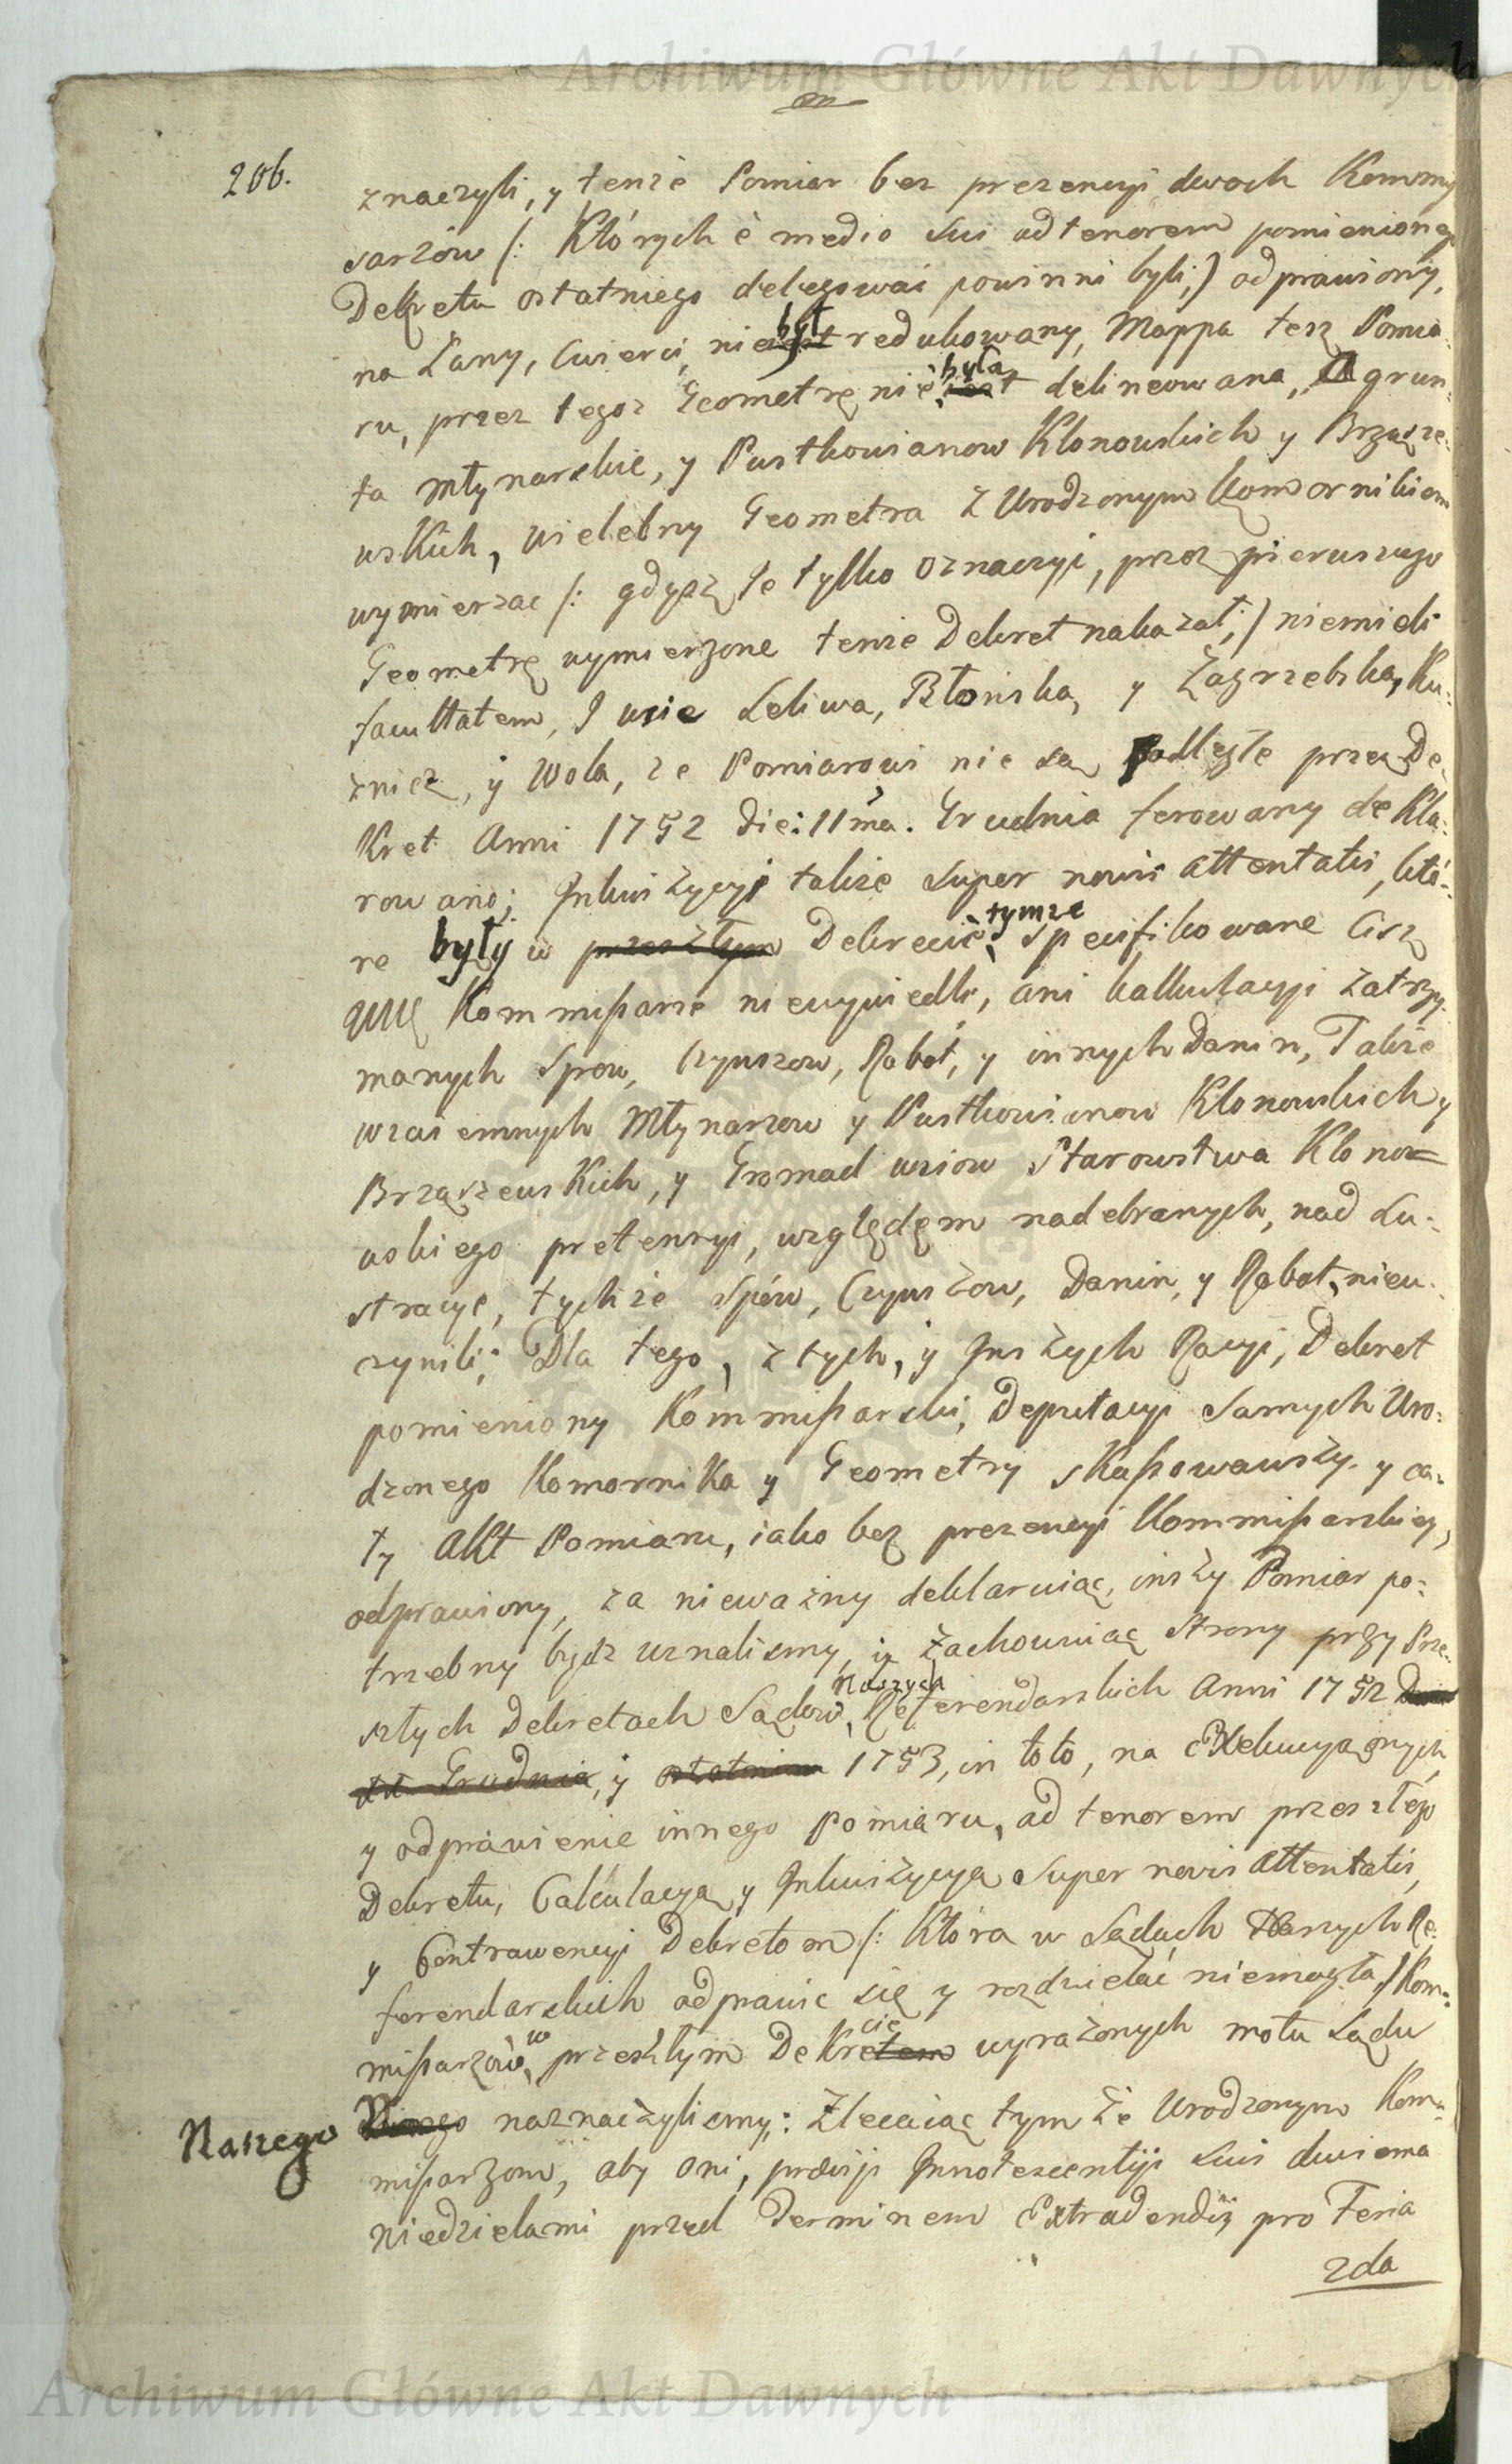 Archiwum Główne Akt Dawnych
206.
znaczyli, y tenże Pomiar bez prezencyi dwoch Kommy
sarzow /: Których è medio sui ad tenorem pomieniong
Dekretu ostatniego delegowai powinni byli:/ odprawiony,
na Łany, Cwierci, nie był redukowany, Mappa tesz Pomia
ru, przez tegoz Geometrę nie była delineowana, A grun
ta Młynarskie, y Pustkowianow Klonowskich y Brząsze
wskich, wielebny Geometra z Urodzonym Komornikiem
wymierzac /: gdysz te tylko oznaczyć, przez pierwszego
Geometrę wymierzone tenże Dekret nakazał:/ niemieli
facultatem, I wsie Leliwa, Błońska, y Zagrzebska, Ku-
znica, y Wola, ze Pomiarowi nie są podległe przez De
Kret Anni 1752 die: 11ma. Grudnia ferowany de Kla-
rowano; Inkwizycyi także super novis attentatis, któ-
re były w przeszłym Dekrecie tymże specifikowane Ciż
Kommissarze niewywiedli, ani kalkulacyi zatrzy
manych Spow, Czynszow, Robot, y innych Danin, Także
wzaiemnych Młynarzow y Pustkowianow Klonowskich y
Brząszewskich, y Gromad wsiow Starowstwa Klono=
wskiego pretensyi, względęm nadebranych, nad Lu-
stracye, tychże Spów, Czynszow, Danin, y Robot, nieu-
czynili; Dla tego, z tych, y Inszych Racyi, Dekret
pomieniony Kommissarski, Deputacyi samych Uro-
dzonego Komornika y Geometry skassowawszy y ca-
ły Akt Pomiaru, iako bez prezencyi Kommissarskiey,
odprawiony, za nieważny deklaruiąc, inszy Pomiar po-
trzebny bydz uznalismy, y zachowuiąc strony przy Prze-
szłych Dekretach Sądow Naszych Referendarskich Anni 1752
Grudnia, y ostatnim 1753, in toto, na Exekucya onych,
y odprawienie innego Pomiaru, ad tenorem przeszłego
Dekretu, Calculacyą y Inkwizycyą super novis attentatis,
y Contrawencyi Dekretom /: Która w Sądach Naszych Re-
ferendarskich odprawic się y rozdzielać niemogła :/ Kom-
missarzow w przeszłym DeKrecie wyrażonych motu Sądu
Naszego naznaczylismy: Zlecaiąc tym że Urodzonym Kom-
missarzom, aby oni, prævijs Innotescentijs suis dwiema
Niedzielami przed Terminem Extradendis pro Feria
2da
Archiwum Główne Akt Dawnych